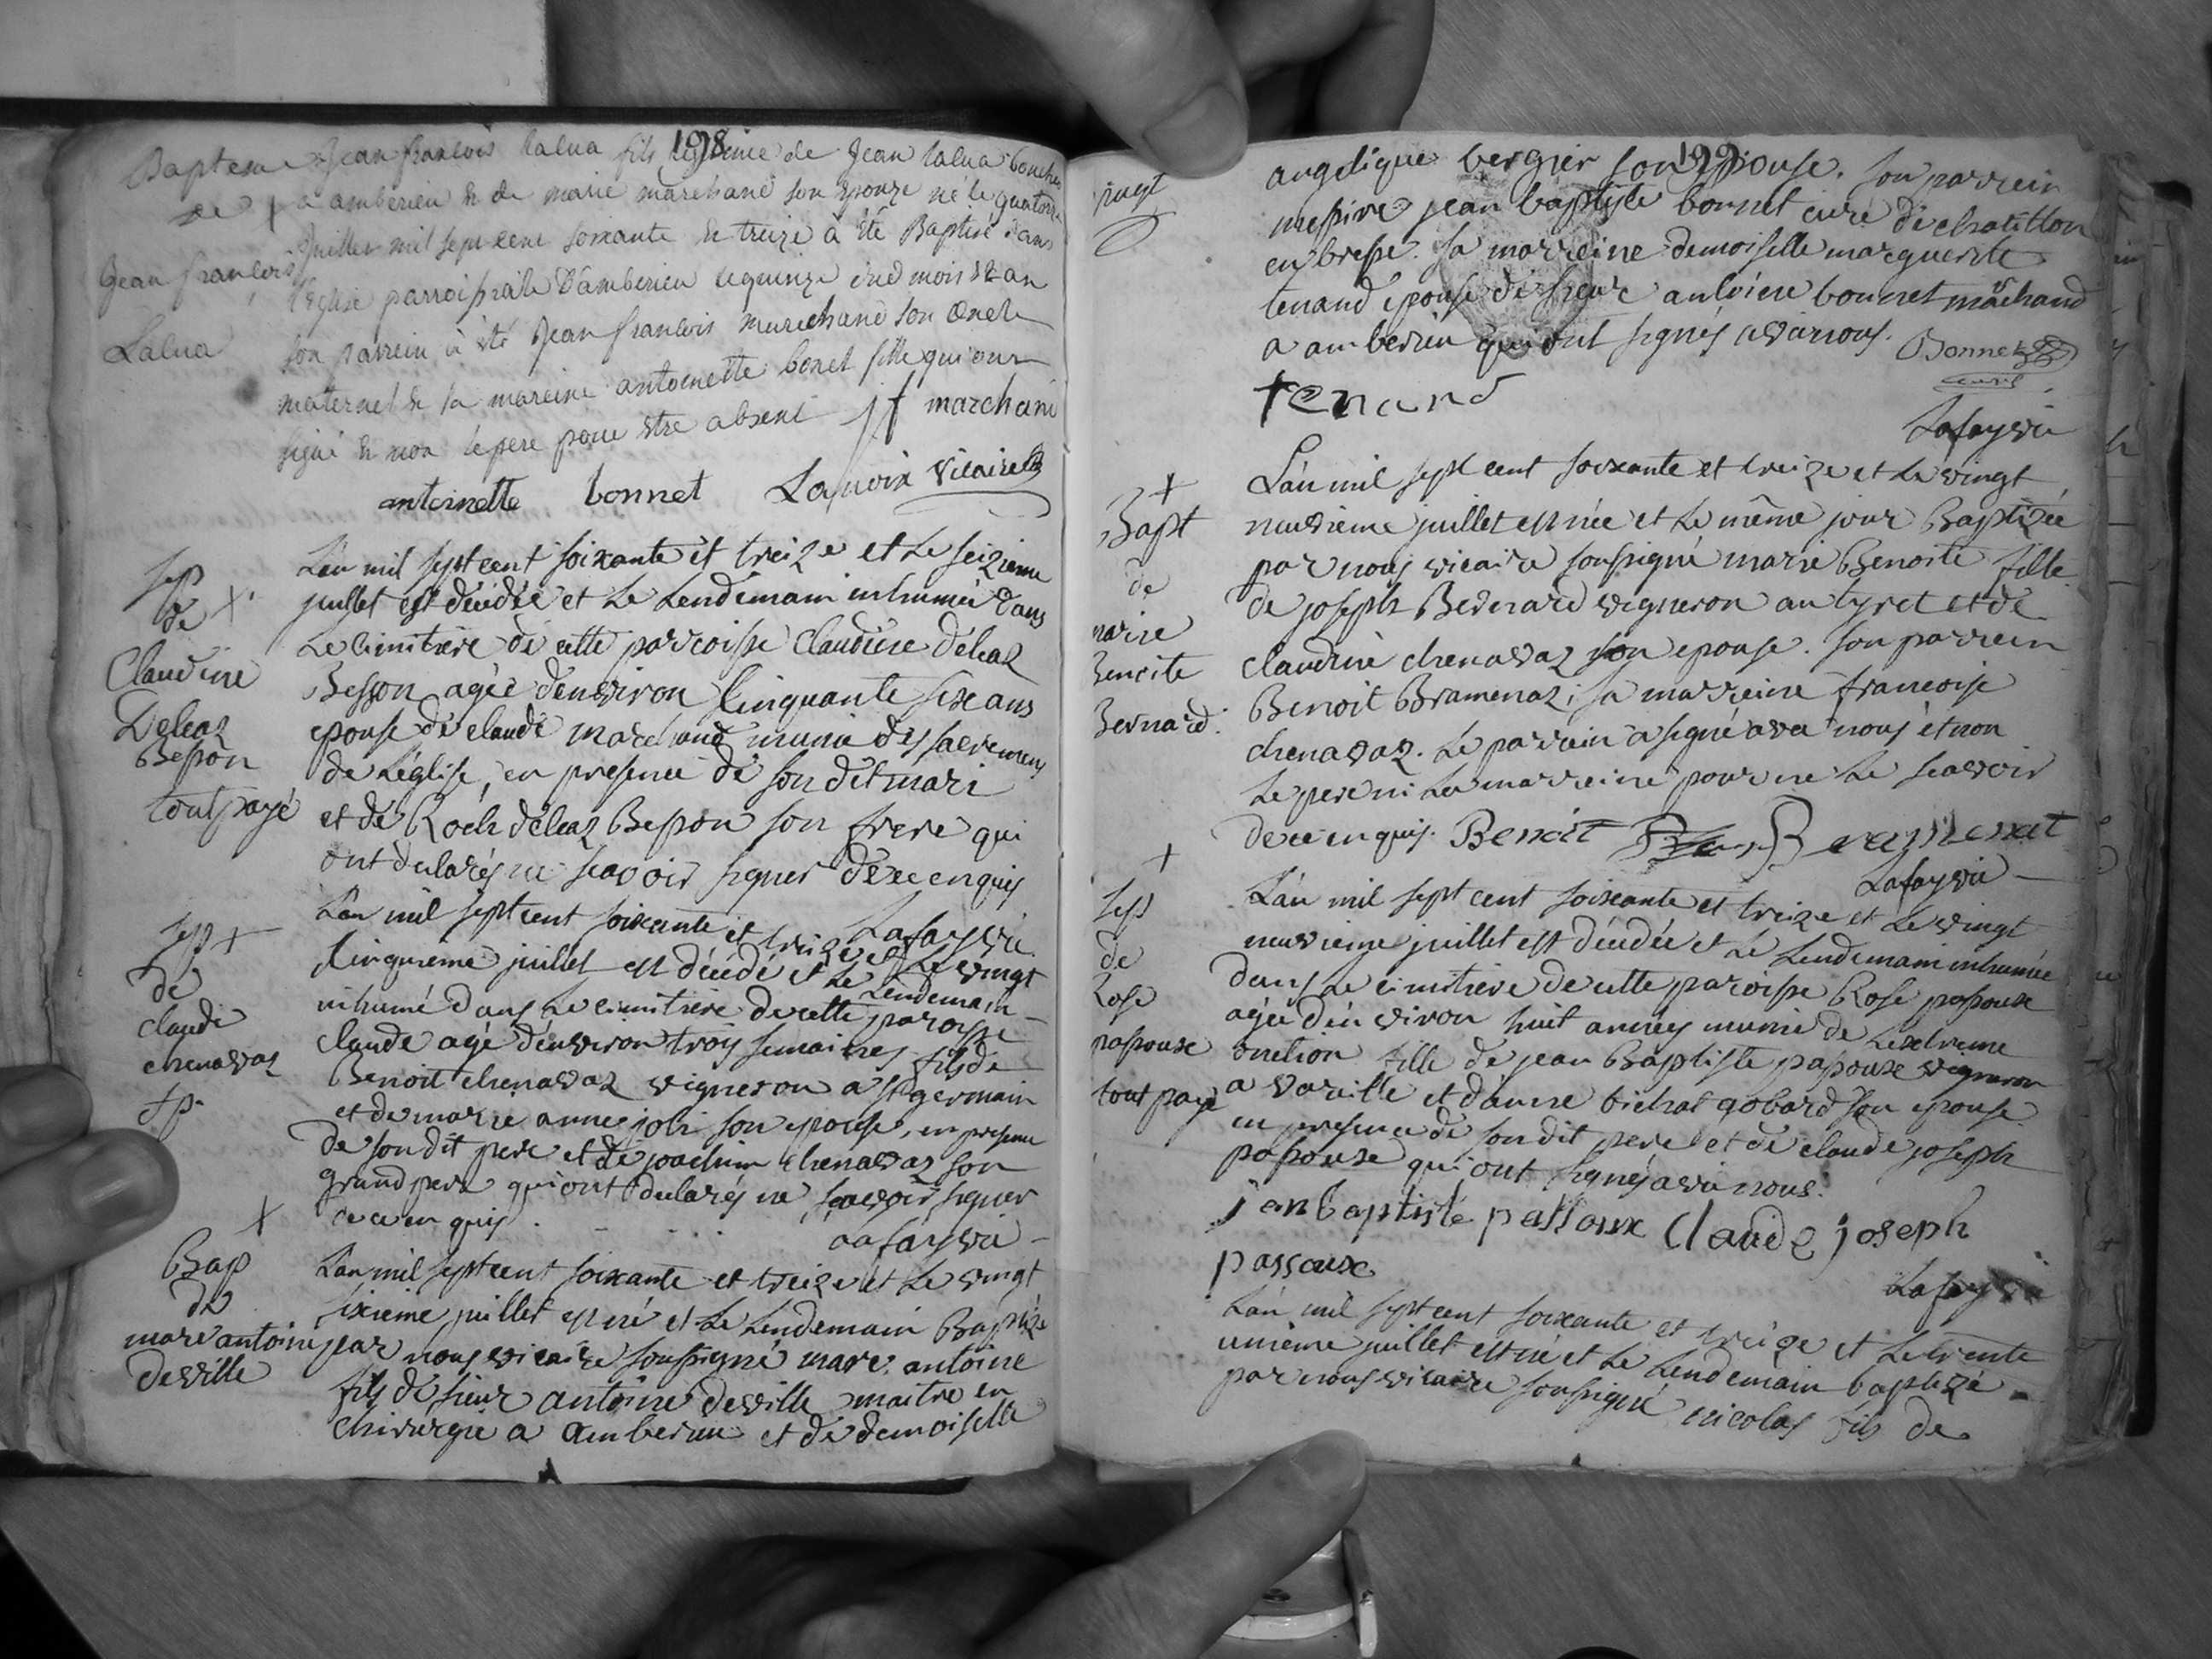 198
Bapteme Jean francois lalua fils legitime de Jean lalua boucher
de a amberieu & de marie marchand son epouze né le quatorze
Juillet mil sept cent soixante & treize à été Baptisé dans
Jean francois l'Eglise parroissiale d'amberieu le quinze dud mois & an
son parrein à été Jean francois marchand son Oncle
Lalua
maternel & la mareine antoinette bonet fille qui ont
signé & non le pere pour etre absent jf marchand
antoinette bonnet Lanoix vicaire
Sep
de
Claudine
Deleaz
Besson
tout payé
L'an mil sept cent soixante et treize et le seizieme
juillet est décédée et le Lendemain inhumée dans
Le cimitiere de cette parroisse Claudine deleaz
Besson agée d'environ Cinquante six ans
epouse de claude marchand munie des sacremens
de L'église, en presence de son dit mari
et de Roch deleaz Besson son frere qui
ont declarés ne scavoir signer de ce enquis
Lafay vic
Sep
de
claude
chenavaz
Lan mil sept cent soixante et treize et Le vingt
Cinquieme juillet est décédé et Le Lendemain
inhumé dans Le cimitiere de cette paroisse
claude agé d'environ trois semaines fils de
Benoit chenavaz vigneron a st germain
et de marie anne joli son epouse, en presence
de son dit pere et de joachim chenavaz son
grand pere qui ont declarés ne scavoir signer
de ce enquis. Lafay vic
Bap
de
marc antoine
deville
L'an mil sept cent soixante et treize et Le vingt
sixieme juillet est né et Le Lendemain Baptizé
par nous vicaire soussigné marc antoine
fils de sieur antoine deville maitre en
chirurgie a amberieu et de demoiselle
199
angelique bergier son epouse. son parrein
messire jean baptiste bonnet curé de chatillon
en bresse. sa marreine demoiselle marguerite
tenand epouse de sieur antoine bonnet marchand
a amberieu qui ont signés avec nous. Bonnet
curé
tenand
Lafay vic
Bapt
de
marie
Benoite
Bernard.
L'an mil sept cent soixante et treize et Le vingt
neuvieme juillet est née et Le même jour Baptizée
par nous vicaire soussigné marie Benoite fille
de joseph Bernard vigneron au tyret et de
claudine chenavaz son epouse. son parrein
Benoit Bramenaz; sa marreine francoise
chenavaz. Le parrein a signé avec nous et non
Le pere ni La marreine pour ne Le scavoir
de ce enquis. Benoit
Lafay vic
Sep
de
Rose
passoux
tout payé
L'an mil sept cent soixante et treize et Le vingt
neuvieme juillet est décédée et Le Lendemain inhumée
dans Le cimitiere de cette paroisse Rose passoux
agée d'environ huit années munie de Lextreme
onction fille de jean Baptiste passoux vigneron
a vareille et d'anne bichat gobard son epouse
en presence de son dit pere et de claude joseph
passoux qui ont signés avec nous.
jan baptiste passoux Claude joseph
passoux
Lafay vic
L'an mil sept cent soixante et treize et Le trente
unieme juillet est né et Le Lendemain baptizé
par nous vicaire soussigné nicolas fils de